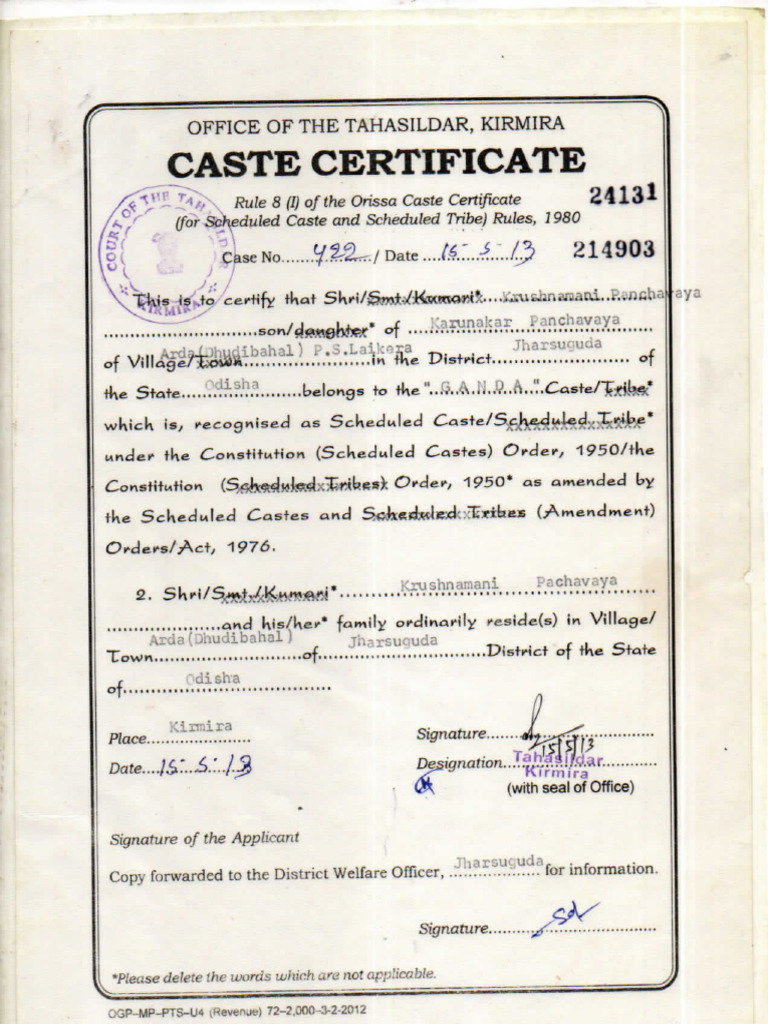 OFFICE OF THE TAHASILDAR, KIRMIRA
CASTE CERTIFICATE
Rule 8 (I) of the Orissa Caste Certificate
(for Scheduled Caste and Scheduled Tribe) Rules, 1980
24131
COURT OF THE TAHASILDAR KIRMIRA
Case No. 422 / Date 15-5-13
214903
This is to certify that Shri/Smt./Kumari* Krushnamani Panchavaya
son/daughter* of Karunakar Panchavaya
of Village/Town Arda(Dhudibahal) P.S.Laikera in the District Jharsuguda of
the State Odisha belongs to the "G.A.N.D.A." Caste/Tribe*
which is, recognised as Scheduled Caste/Scheduled Tribe*
under the Constitution (Scheduled Castes) Order, 1950/the
Constitution (Scheduled Tribes) Order, 1950* as amended by
the Scheduled Castes and Scheduled Tribes (Amendment)
Orders/Act, 1976.
2. Shri/Smt./Kumari* Krushnamani Pachavaya
and his/her* family ordinarily reside(s) in Village/
Town Arda(Dhudibahal) of Jharsuguda District of the State
of Odisha
Place Kirmira
Date 15-5-13
Signature
15/5/13
Designation Tahasildar
Kirmira
(with seal of Office)
Signature of the Applicant
Copy forwarded to the District Welfare Officer, Jharsuguda for information.
Signature Sd/
*Please delete the words which are not applicable.
OGP-MP-PTS-U4 (Revenue) 72-2,000-3-2-2012